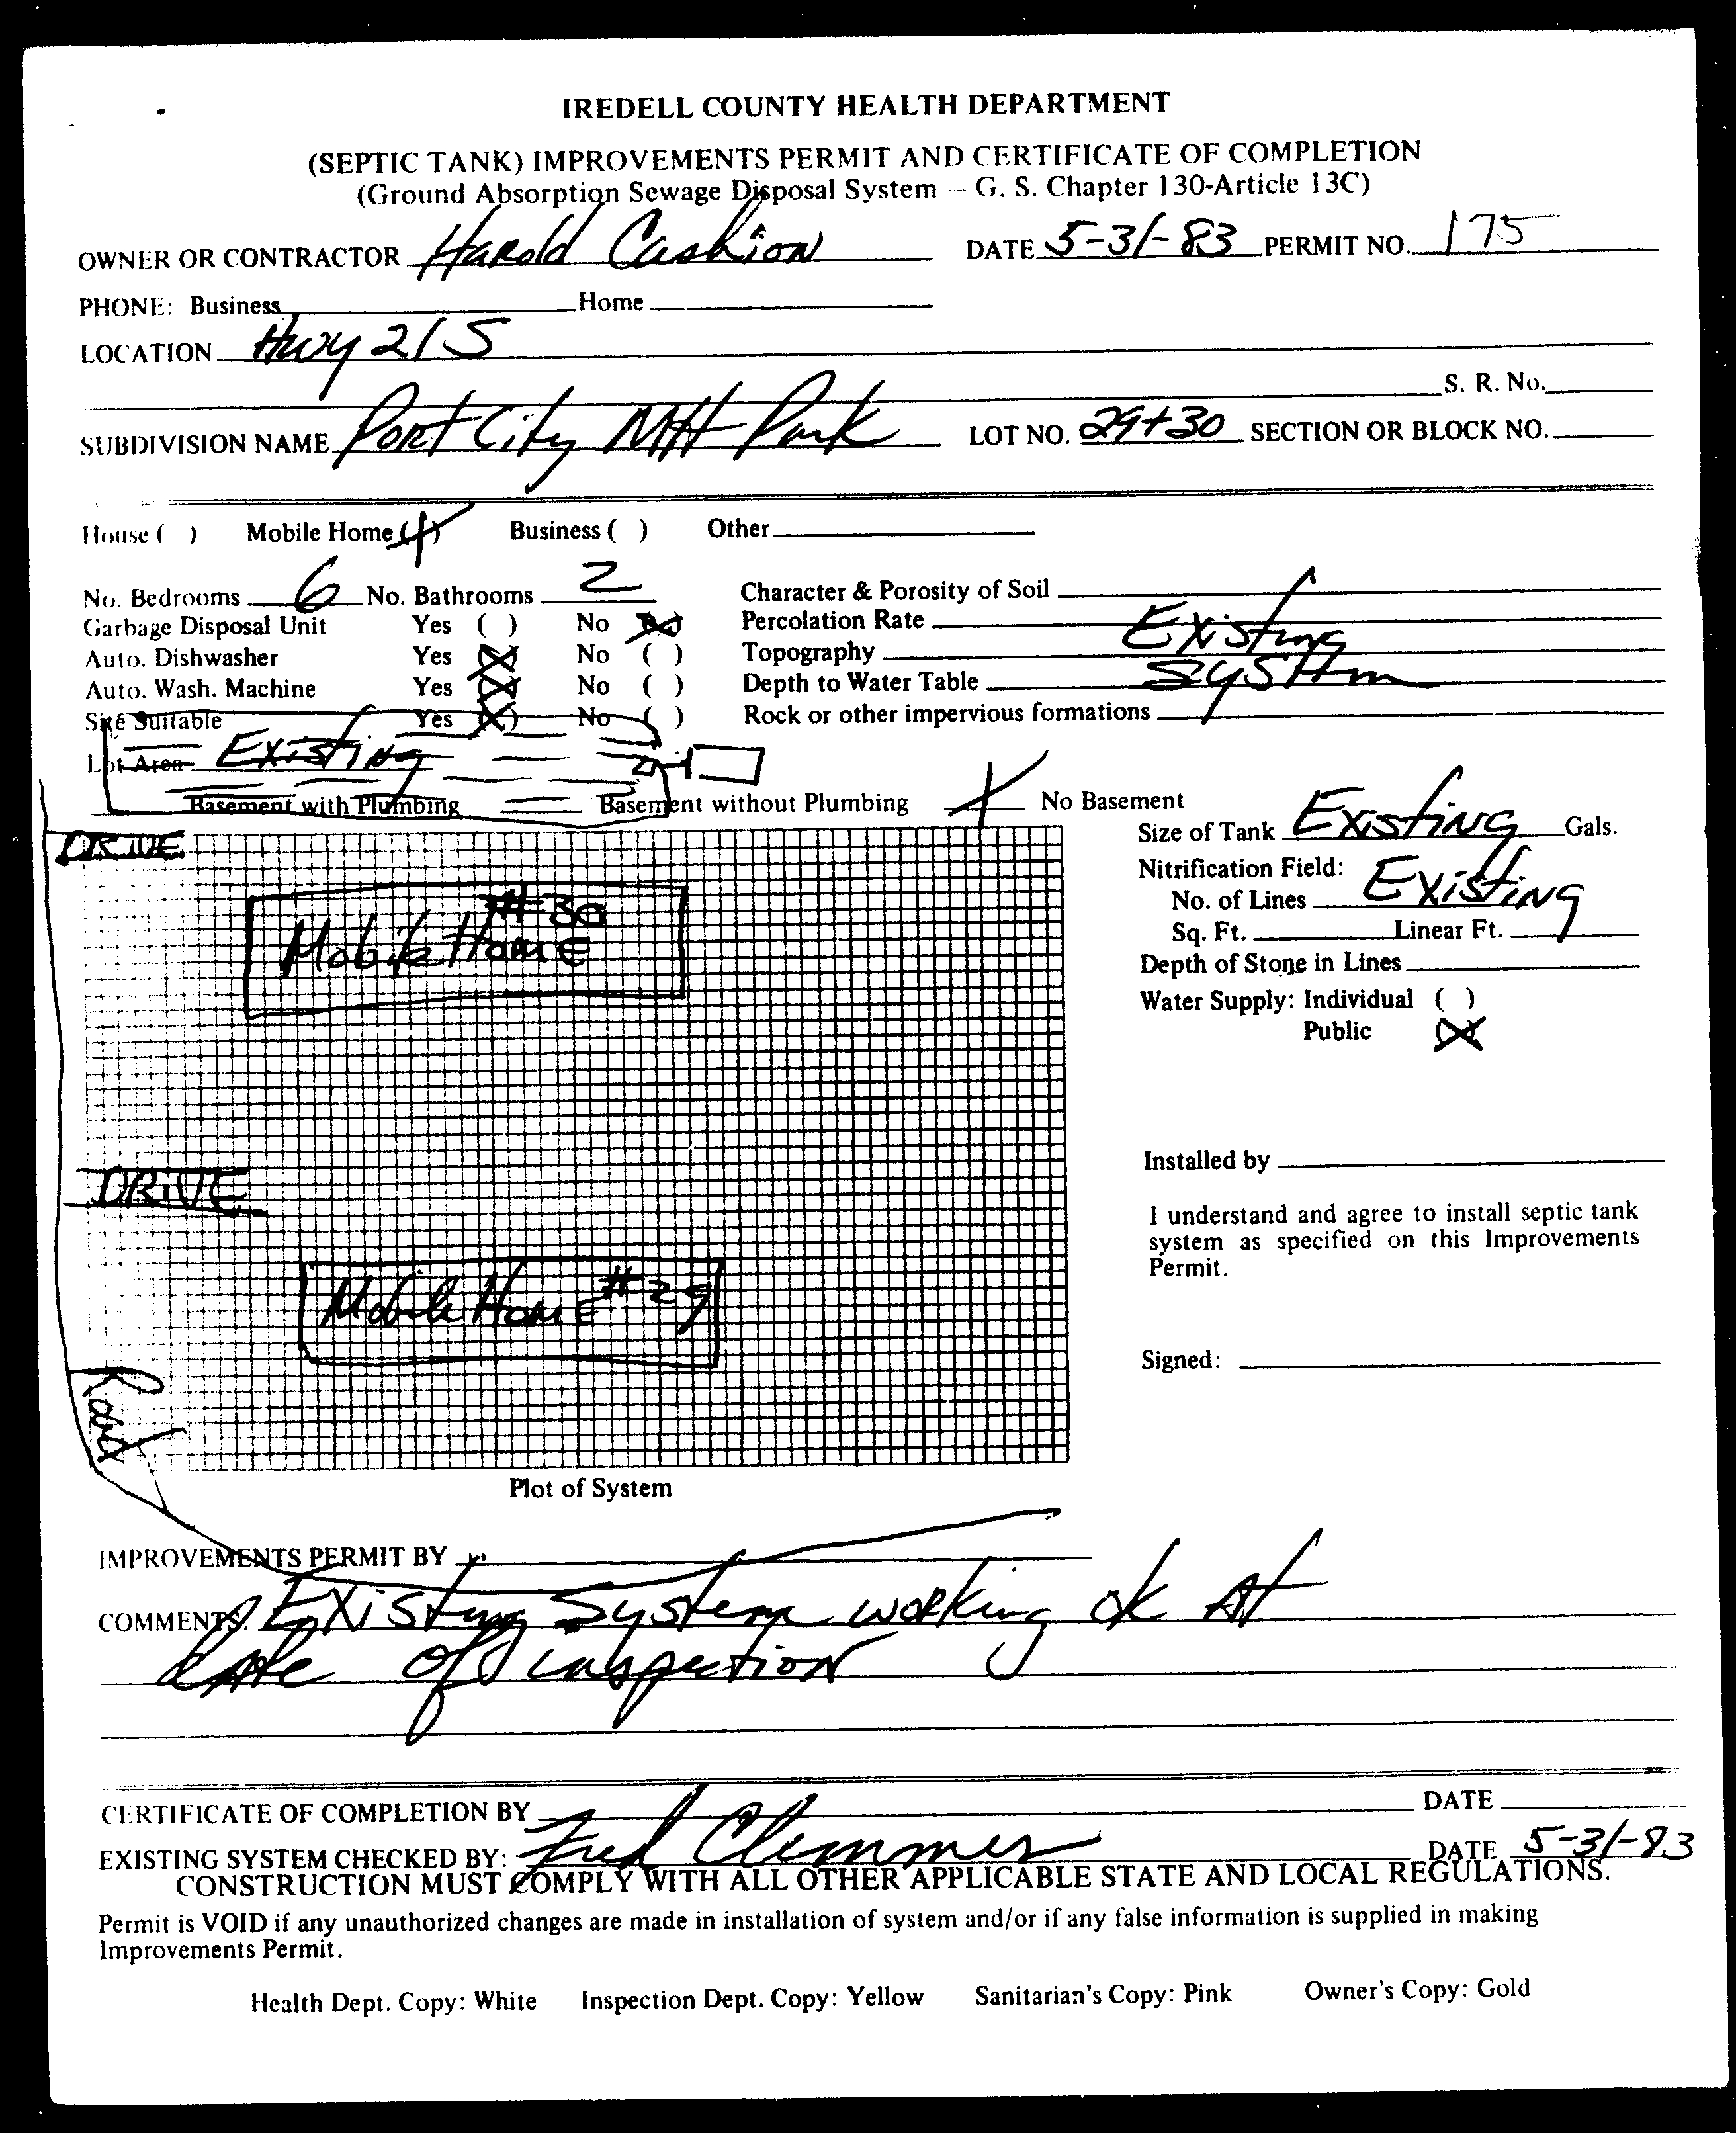 IREDELL COUNTY HEALTH DEPARTMENT
(SEPTIC TANK) IMPROVEMENTS PERMIT AND CERTIFICATE OF COMPLETION
(Ground Absorption Sewage Disposal System — G. S. Chapter 130-Article 13C)
OWNER OR CONTRACTOR Harold Cashion DATE 5-31-83 PERMIT NO. 175
PHONE: Business Home
LOCATION Hwy 21 S
S. R. No.
SUBDIVISION NAME Port City MH Park LOT NO. 29+30 SECTION OR BLOCK NO.
House ( ) Mobile Home (X) Business ( ) Other
No. Bedrooms 6 No. Bathrooms 2 Character & Porosity of Soil
Garbage Disposal Unit Yes ( ) No (X) Percolation Rate Existing
Auto. Dishwasher Yes (X) No ( ) Topography System
Auto. Wash. Machine Yes (X) No ( ) Depth to Water Table
Site Suitable Yes (X) No ( ) Rock or other impervious formations
Lot Area Existing
Basement with Plumbing Basement without Plumbing X No Basement
DRIVE
Size of Tank Existing Gals.
Nitrification Field:
No. of Lines Existing
Sq. Ft. Linear Ft.
Depth of Stone in Lines
Water Supply: Individual ( )
Public (X)
#30
Mobile Home
DRIVE
Mobile Home #29
Road
Installed by
I understand and agree to install septic tank
system as specified on this Improvements
Permit.
Signed:
Plot of System
IMPROVEMENTS PERMIT BY
COMMENTS: Existing System working ok At
date of inspection
CERTIFICATE OF COMPLETION BY DATE
EXISTING SYSTEM CHECKED BY: Fred Clemmer DATE 5-31-83
CONSTRUCTION MUST COMPLY WITH ALL OTHER APPLICABLE STATE AND LOCAL REGULATIONS.
Permit is VOID if any unauthorized changes are made in installation of system and/or if any false information is supplied in making
Improvements Permit.
Health Dept. Copy: White Inspection Dept. Copy: Yellow Sanitarian's Copy: Pink Owner's Copy: Gold